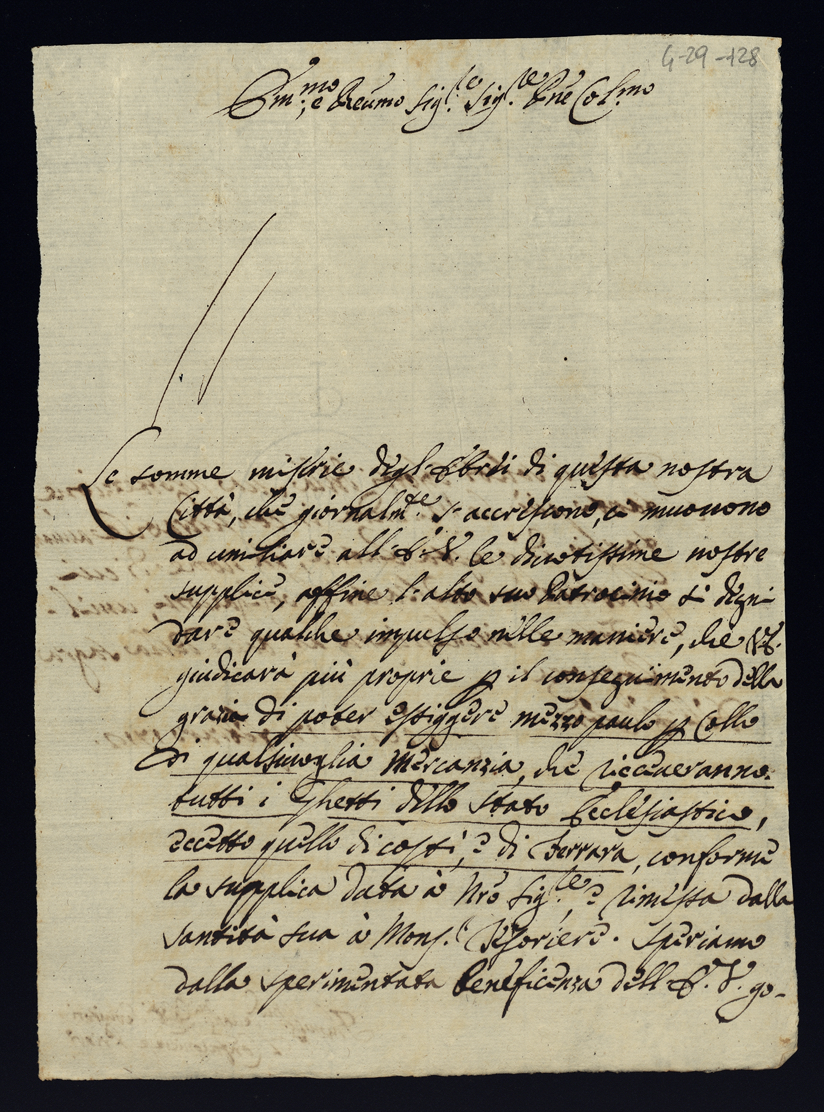 4-29-128
Em.mo, e Reumo Sig.re Sig.re Pne Col.mo
Le somme miserie degl'Ebrei di questa nostra
Città, che giornalm.te s'accrescono, ci muouono
ad umiliare all'E. V. le diuotissime nostre
supplice, affine l'alto suo Patrocinio si degni
dare qualche impulso nelle maniere, che V.E.
giudicarà più proprie p il conseguimento della
grazia di poter esiggere mezzo paulo p Collo
di qualsiuoglia Mercanzia, che riceueranno
tutti i Ghetti dello Stato Ecclesiastico,
eccetto quello di costì, e di Ferrara, conforme
la supplica data à Nrò Sig.re, e rimessa dalla
Santità sua à Mons.r Tesoriere. Speriamo
dalla sperimentata beneficenza dell'E. V. go-